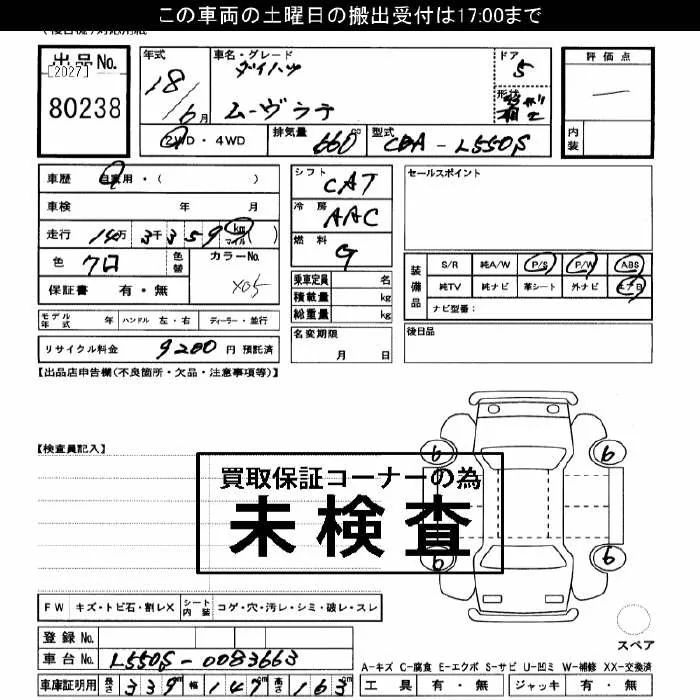 この車両の土曜日の搬出受付は17:00まで
出品No.
[2027]
80238
年式
18
6月
車名・グレード
ダイハツ
ムーヴラテ
ドア
5
形状
評価点
内装
2WD・4WD
排気量
660 cc
型式
CBA - L550S
車歴 自家用・( )
車検 年 月
走行 14万 3千359 km マイル ( )
色 クロ
色替
カラーNo.
X05
保証書 有・無
シフト
CAT
冷房
AAC
燃料
G
乗車定員 名
積載量 kg
総重量 kg
セールスポイント
装備品
S/R 純A/W P/S P/W ABS
純TV 純ナビ 革シート 外ナビ エアB
ナビ型番:
モデル年式 年 ハンドル 左・右 ディーラー・並行
名変期限
月 日
後日品
リサイクル料金 9200 円 預託済
【出品店申告欄(不良箇所・欠品・注意事項等)】
【検査員記入】
買取保証コーナーの為
未検査
6
6
6
6
FW キズ・トビ石・割レX
シート内装 コゲ・穴・汚レ・シミ・破レ・スレ
スペア
登録No.
車台No. L550S-0083663
A-キズ C-腐食 E-エクボ S-サビ U-凹ミ W-補修 XX-交換済
車庫証明用 長さ 339 cm 幅 147 cm 高さ 163 cm
工具 有・無 ジャッキ 有・無